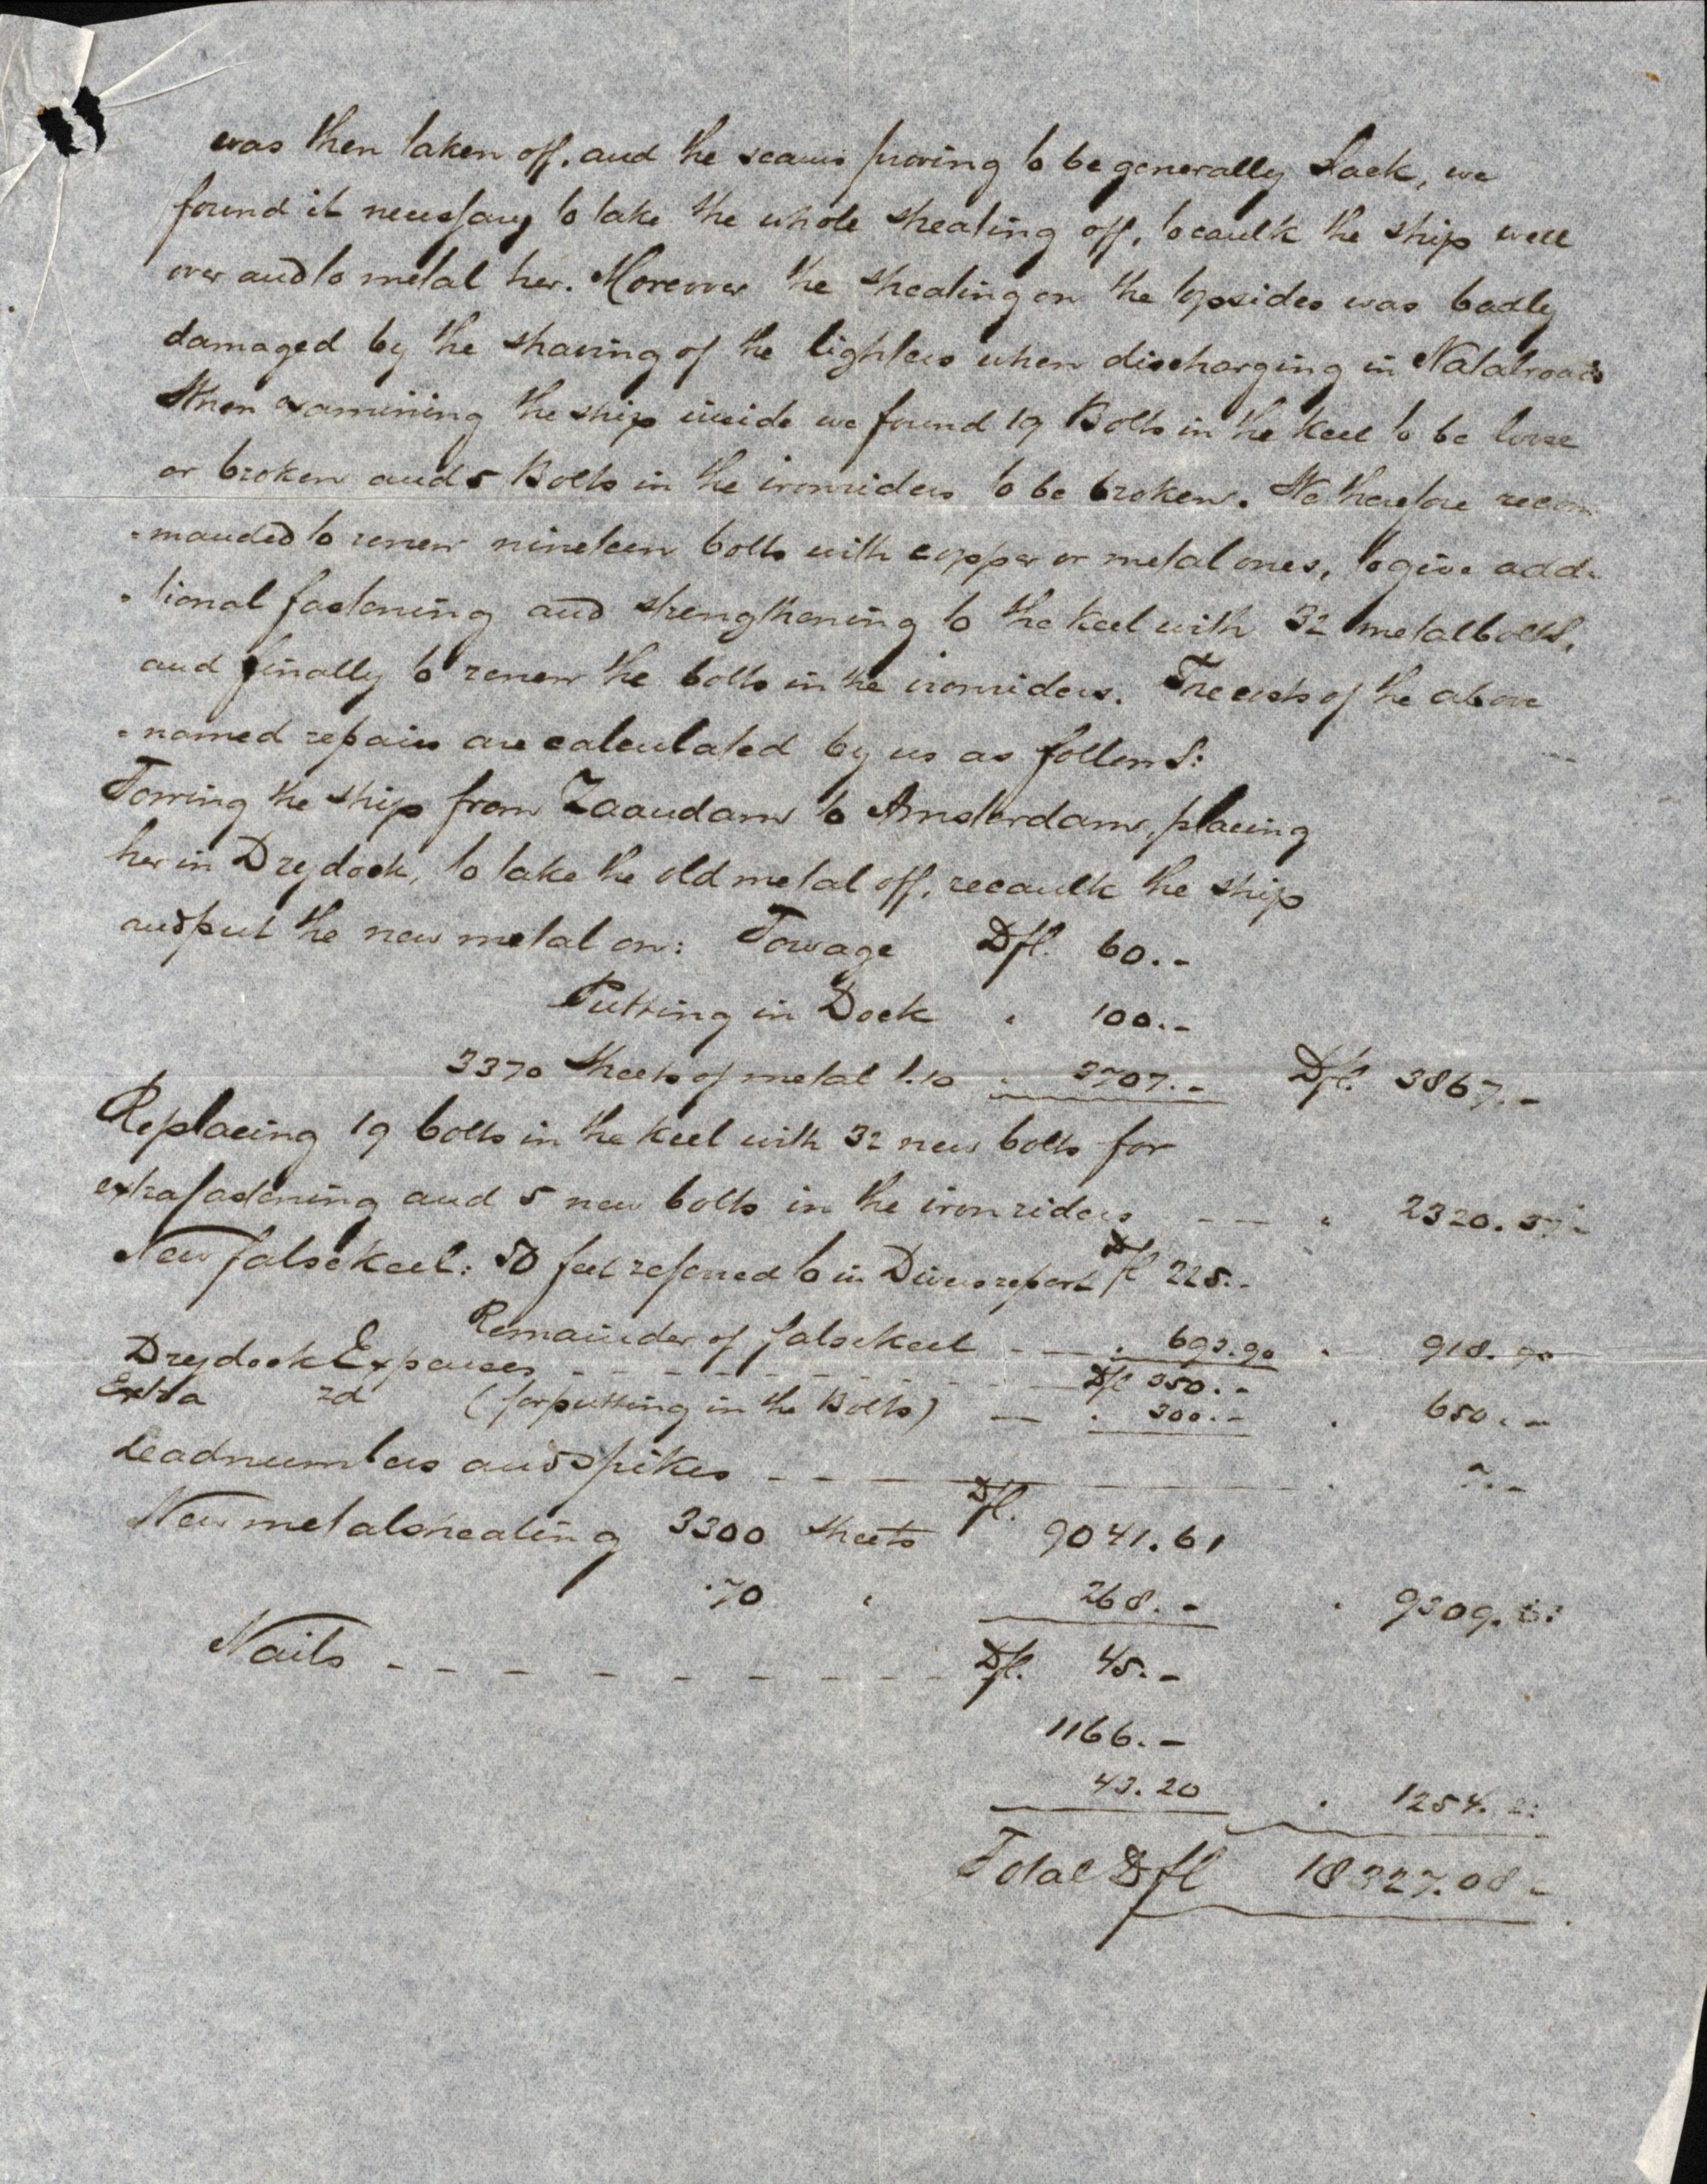 was then taken off, and the seams proving to be generally slack, we
found it necessary to take the whole sheating off, to caulk the ship well
over and to metal her. Moreover the sheating on the topsides was badly
damaged by the shaving of the lighters when discharging in Natalroads
When examining the ship inside we found 19 Bolts in the keel to be loose
or broken and 5 Bolts in the ironriders to be broken. We therefore recom
-manded to renew nineteen bolts with copper or metal ones, to give addi
-tional fastening and strengthening to the keel with 32 metalbolts,
and finally to renew the bolts in the ironriders. The costs of the above
-named repairs are calculated by us as follows:
Towing the ship from Zaandam to Amsterdam, placing
her in Drydock, to take the old metal off, recaulk the ship
and put the new metal on: Towage Dfl. 60.-
Putting in Dock " 100.-
3370 Sheets of metal 1.10 " 3707.- Dfl. 3867.-
Replacing 19 bolts in the keel with 32 new bolts for
extrafastening and 5 new bolts in the ironriders - - " 2320.37
New falsekeel: 50 feet refered to in Diversreport Dfl 225.-
Remainder of falsekeel - - " 693.90 " 918.90
Drydock Expences - - - - - - Dfl 350.-
Extra id (for putting in the Bolts) - " 300.- " 650.-
Leadnumbers and Spikes - - - " 7.-
New metalsheating 3300 Sheets Dfl. 9041.61
70 " 268.- " 9309.61
Nails - - - - - - - - - Dfl. 45.-
1166.-
43.20 " 1254.20
Total Dfl 18327.08-